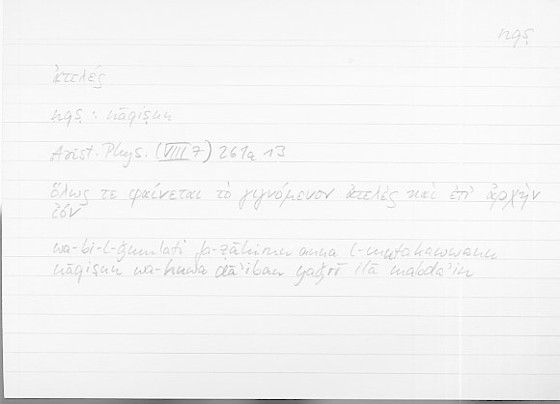 nqṣ
ἀτελές
nqṣ : nāqiṣun
Arist. Phys. (VIII 7) 261a 13
ὅλως τε φαίνεται τὸ γιγνόμενον ἀτελὲς καὶ ἐπ' ἀρχὴν
ἰόν
wa-bi-l-ǧumlati fa-ẓāhirun anna l-mutakawwana
nāqiṣun wa-huwa dāʾiban yaǧrī ilā mabdaʾin